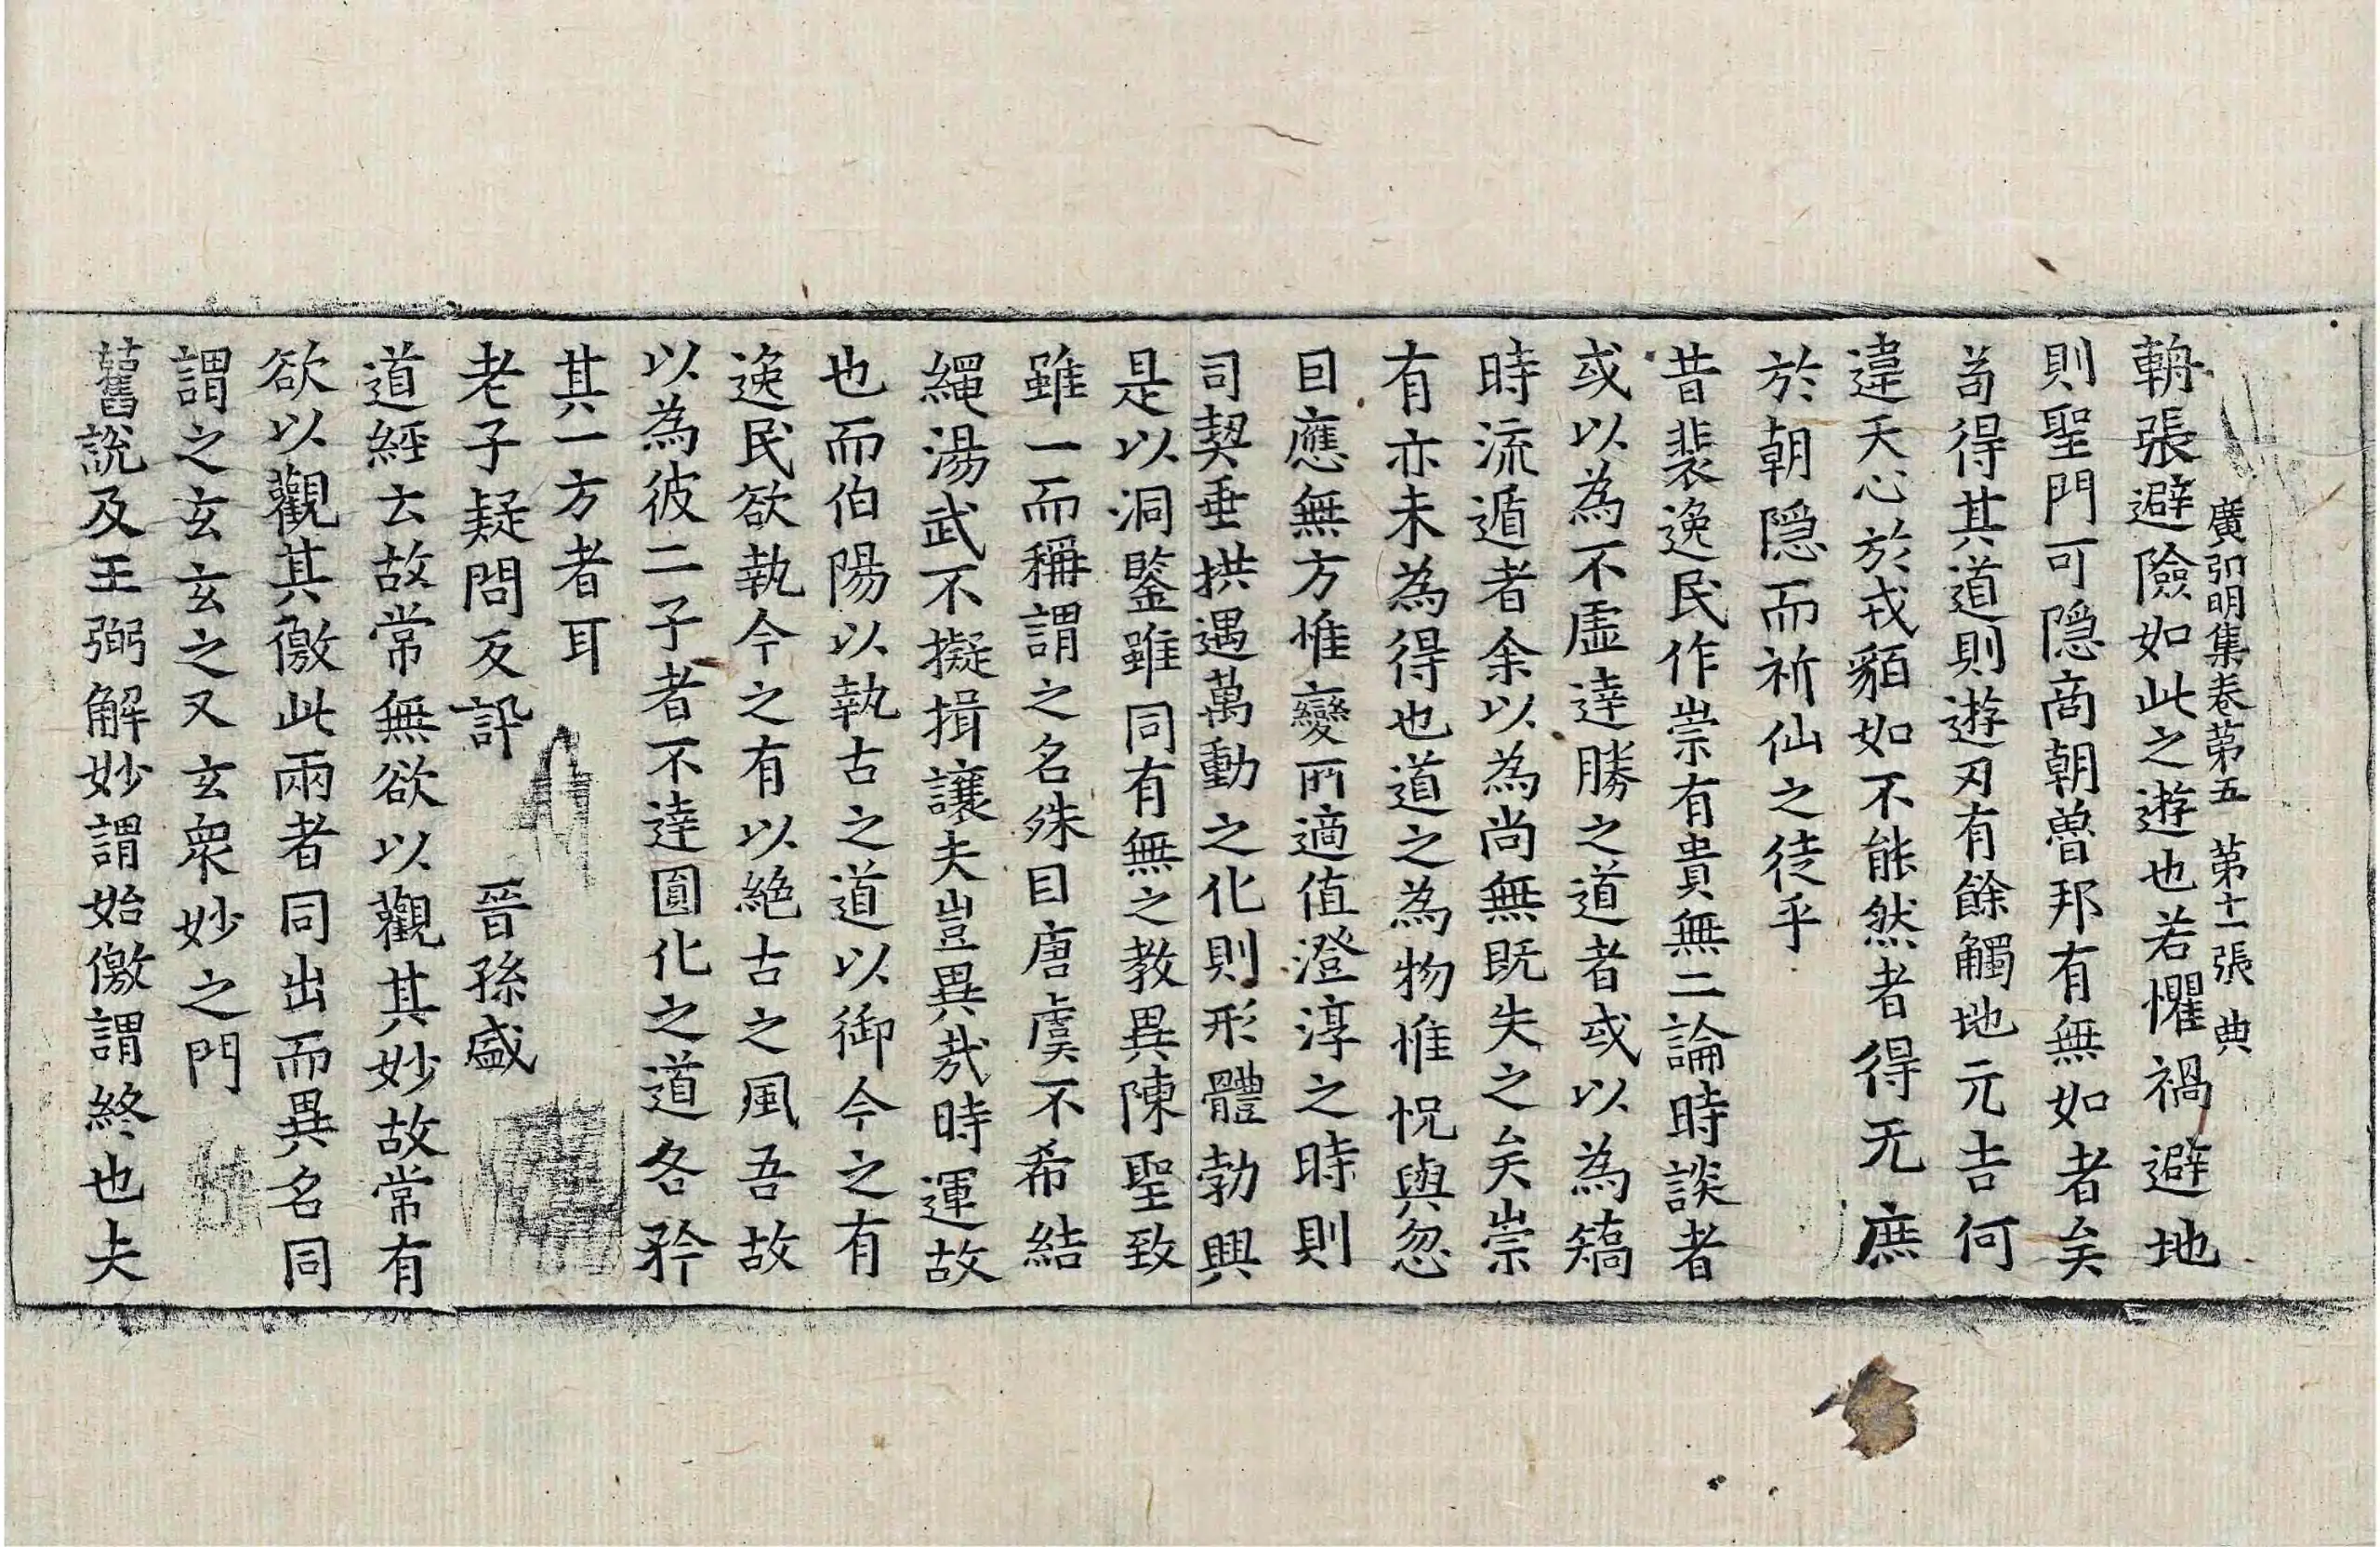 廣弘明集卷第五　第十一張　典
輈張避險如此之遊也若懼禍避地
則聖門可隱商朝魯邦有無如者矣
苟得其道則遊刃有餘觸地元吉何
違天心於戎貊如不能然者得无庶
於朝隱而祈仙之徒乎
昔裴逸民作崇有貴無二論時談者
或以為不虛達勝之道者或以為矯
時流遁者余以為尚無既失之矣崇
有亦未為得也道之為物惟怳與忽
因應無方惟變所適值澄淳之時則
司契垂拱遇萬動之化則形體勃興
是以洞鑒雖同有無之教異陳聖致
雖一而稱謂之名殊自唐虞不希結
繩湯武不擬揖讓夫豈異哉時運故
也而伯陽以執古之道以御今之有
逸民欲執今之有以絕古之風吾故
以為彼二子者不達圓化之道各矜
其一方者耳
老子疑問反訊　晉孫盛
道經云故常無欲以觀其妙故常有
欲以觀其徼此兩者同出而異名同
謂之玄玄之又玄衆妙之門
舊說及王弼解妙謂始徼謂終也夫